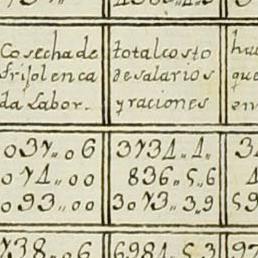 Cosecha de
frisol en ca
da Labor.
total costo
de salarios
y raciones
037,,06
074,,00
093,,00
3734,,4,,
836,,5,,6
3073,,3,,9
738,,06
6984,,5,,3